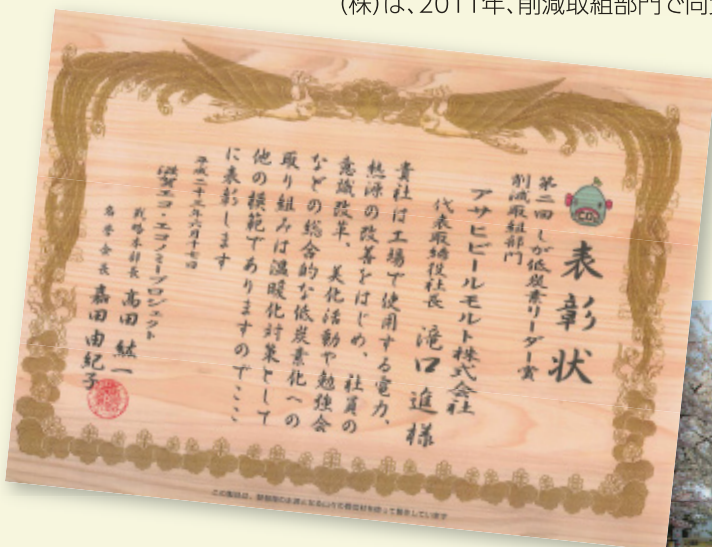 (株)は、2011年、削減取組部門で同
表彰状
第二回 しが低炭素リーダー賞
削減取組部門
アサヒビールモルト株式会社
代表取締役社長 滝口 進 様
貴社は工場で使用する電力、
熱源の改善をはじめ、社員の
意識改革、美化活動や勉強会
などの総合的な低炭素化への
取り組みは温暖化対策として
他の模範でありますのでここ
に表彰します
平成二十三年六月十七日
滋賀エコ・エコノミープロジェクト
戦略本部長 高田 紘一
名誉会長 嘉田 由紀子